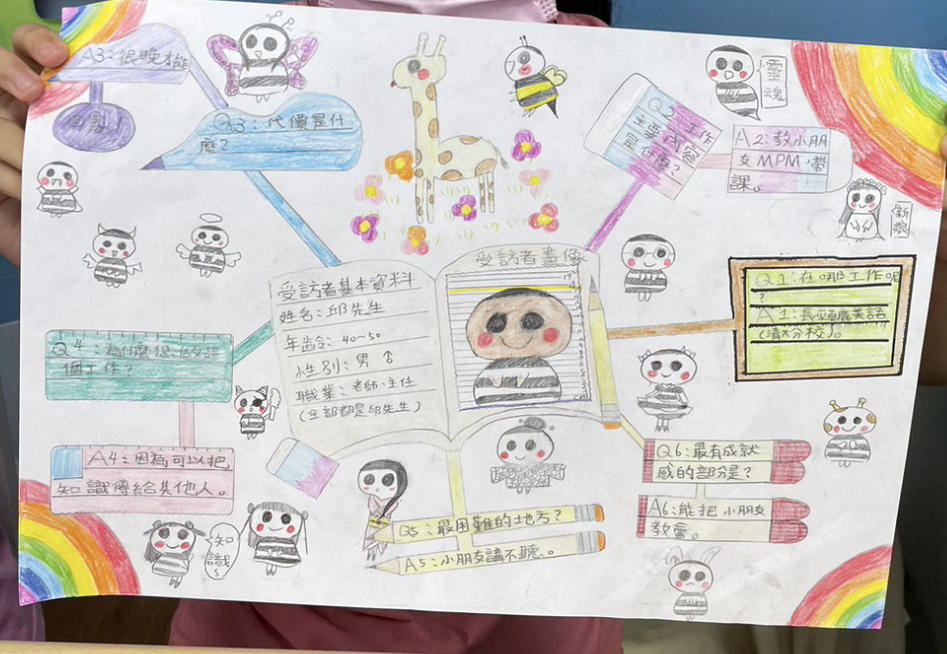 受訪者基本資料
姓名：邱先生
年齡：40~50
性別：男
職業：老師、主任
(全部都是邱先生)
受訪者畫像
Q1：在哪工作呢
?
A1：長頸鹿美語
Q2：工作
主要內容
是什麼?
A2：教小朋
友MPM、帶
課。
Q3：代價是什
麼?
A3：很晚才能
回家!
Q4：為什麼想
個工作?
A4：因為可以把
知識傳給其他人。
Q5：最困難的地方?
A5：小朋友講不聽。
Q6：最有成就
感的部分是?
A6：能把小朋友
教會。
靈
魂
新
娘
知
識